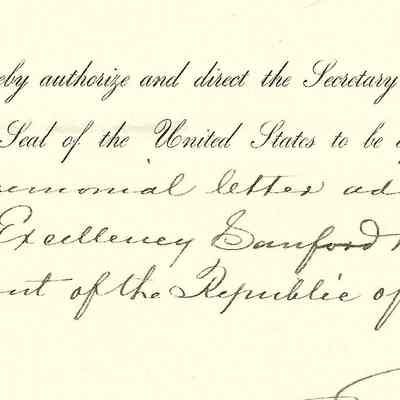 eby authorize and direct the Secretary
Seal of the United States to be a
remonial letter ad
Excellency Sanford
ent of the Republic of